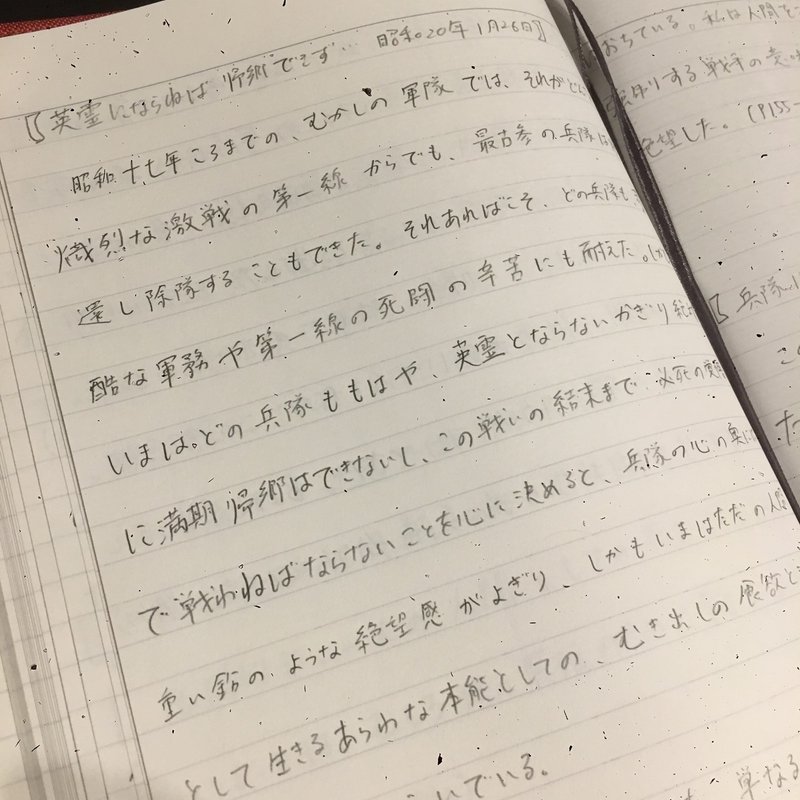 【英霊にならねば 帰郷できず… 昭和20年1月26日】
昭和十七年ころまでの、むかしの軍隊では、それがとん
熾烈な激戦の第一線からでも、最古参の兵隊は
還し除隊することもできた。それあればこそ、どの兵隊も
酷な軍務や第一線の死闘の辛苦にも耐えた。
いまは。どの兵隊ももはや、英霊とならないかぎり
に満期帰郷はできないし、この戦いの結末まで、必死の
で戦わねばならないことを心に決めると、兵隊の心の奥に
重い鉛のような絶望感がよぎり、しかもいまはただの人間
として生きるあらわな本能としての、むき出しの展欲と
いでいる。
おちている。私は人間を
する戦争の意味
絶望した。(P155-
【兵隊
この
た
単なる